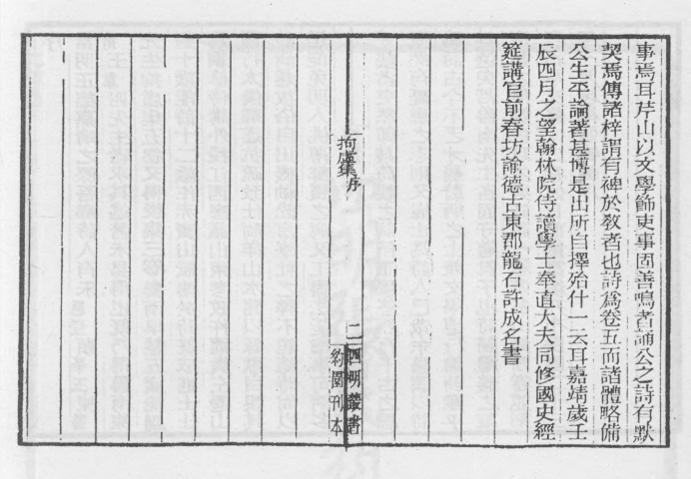 事焉耳芹山以文學飾吏事固善鳴者誦公之詩有默
契焉傳諸梓謂有裨於敎者也詩爲卷五而諸體略備
公生平論著甚博是出所自擇殆什一云耳嘉靖歲壬
辰四月之望翰林院侍讀學士奉直大夫同修國史經
筵講官前春坊諭德古東郡龍石許成名書
拘虛集序
二
四明叢書
約園刊本